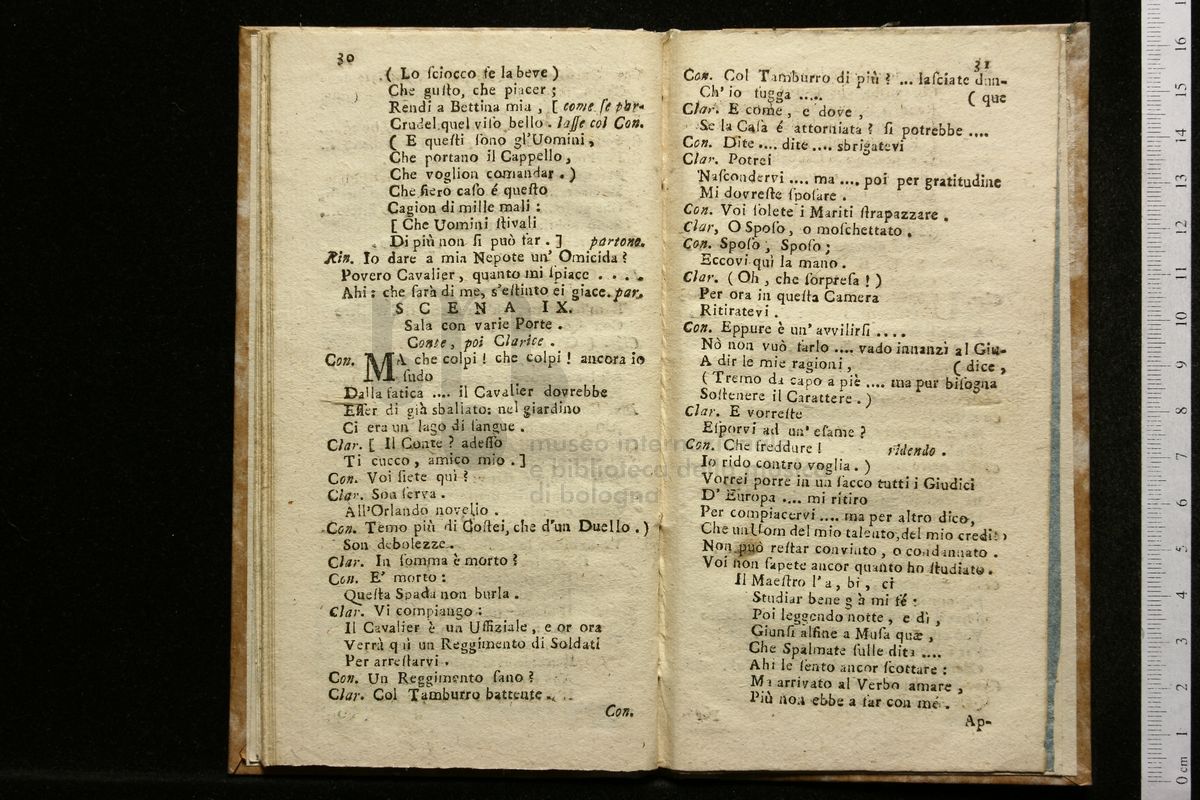 30
( Lo ſciocco ſe la beve )
Che guſto, che piacer ;
Rendi a Bettina mia , [ come ſe par-
Crudel quel viſo bello . laſſe col Con.
( E queſti ſono gl'Uomini ,
Che portano il Cappello ,
Che voglion comandar . )
Che fiero caſo é queſto
Cagion di mille mali :
[ Che Uomini ſtivali
Di più non ſi può far . ] partono.
Rin. Io dare a mia Nepote un' Omicida ?
Povero Cavalier , quanto mi ſpiace . . . .
Ahi : che farà di me, s'eſtinto ei giace. par.
S C E N A IX.
Sala con varie Porte .
Conte , poi Clarice .
Con. MA che colpi ! che colpi ! ancora io
ſudo
Dalla fatica .... il Cavalier dovrebbe
Eſſer di già sballato: nel giardino
Ci era un lago di ſangue .
Clar. [ Il Conte ? adeſſo
Ti cucco , amico mio . ]
Con. Voi ſiete quì ?
Clar. Son ſerva .
All'Orlando novello .
Con. Temo più di Coſtei, che d'un Duello . )
Son debolezze .
Clar. In ſomma è morto ?
Con. E' morto :
Queſta Spada non burla .
Clar. Vi compiango :
Il Cavalier è un Uffiziale , e or ora
Verrà quì un Reggimento di Soldati
Per arreſtarvi .
Con. Un Reggimento ſano ?
Clar. Col Tamburro battente .
Con.
31
Con. Col Tamburro di più ? ... laſciate dun-
Ch' io fugga ..... ( que
Clar. E come , e dove ,
Se la Caſa é attorniata ? ſi potrebbe ....
Con. Dite .... dite .... sbrigatevi
Clar. Potrei
Naſcondervi .... ma .... poi per gratitudine
Mi dovreſte ſpoſare .
Con. Voi ſolete i Mariti ſtrapazzare .
Clar, O Spoſo , o moſchettato .
Con. Spoſo , Spoſo ;
Eccovi quì la mano .
Clar. ( Oh , che ſorpreſa ! )
Per ora in queſta Camera
Ritiratevi .
Con. Eppure è un' avvilirſi ....
Nò non vuò farlo .... vado innanzì al Giu-
A dir le mie ragioni , ( dice ,
( Tremo da capo a piè .... ma pur biſogna
Soſtenere il Carattere . )
Clar. E vorreſte
Eſporvi ad un' eſame ?
Con. Che freddure ! ridendo .
Io rido contro voglia . )
Vorrei porre in un ſacco tutti i Giudici
D' Europa .... mi ritiro
Per compiacervi .... ma per altro dico,
Che un Uom del mio talento, del mio credito
Non può reſtar convinto , o condannato .
Voi non ſapete ancor quanto ho ſtudiato .
Il Maeſtro l' a , bi , ci
Studiar bene g à mi fé :
Poi leggendo notte , e dì ,
Giunſi alfine a Muſa quæ ,
Che Spalmate ſulle dita ....
Ahi le ſento ancor ſcottare :
Ma arrivato al Verbo amare ,
Più non ebbe a far con mé .
Ap-
museo internazionale
e biblioteca della musica
di bologna
0 cm 1 2 3 4 5 6 7 8 9 10 11 12 13 14 15 16